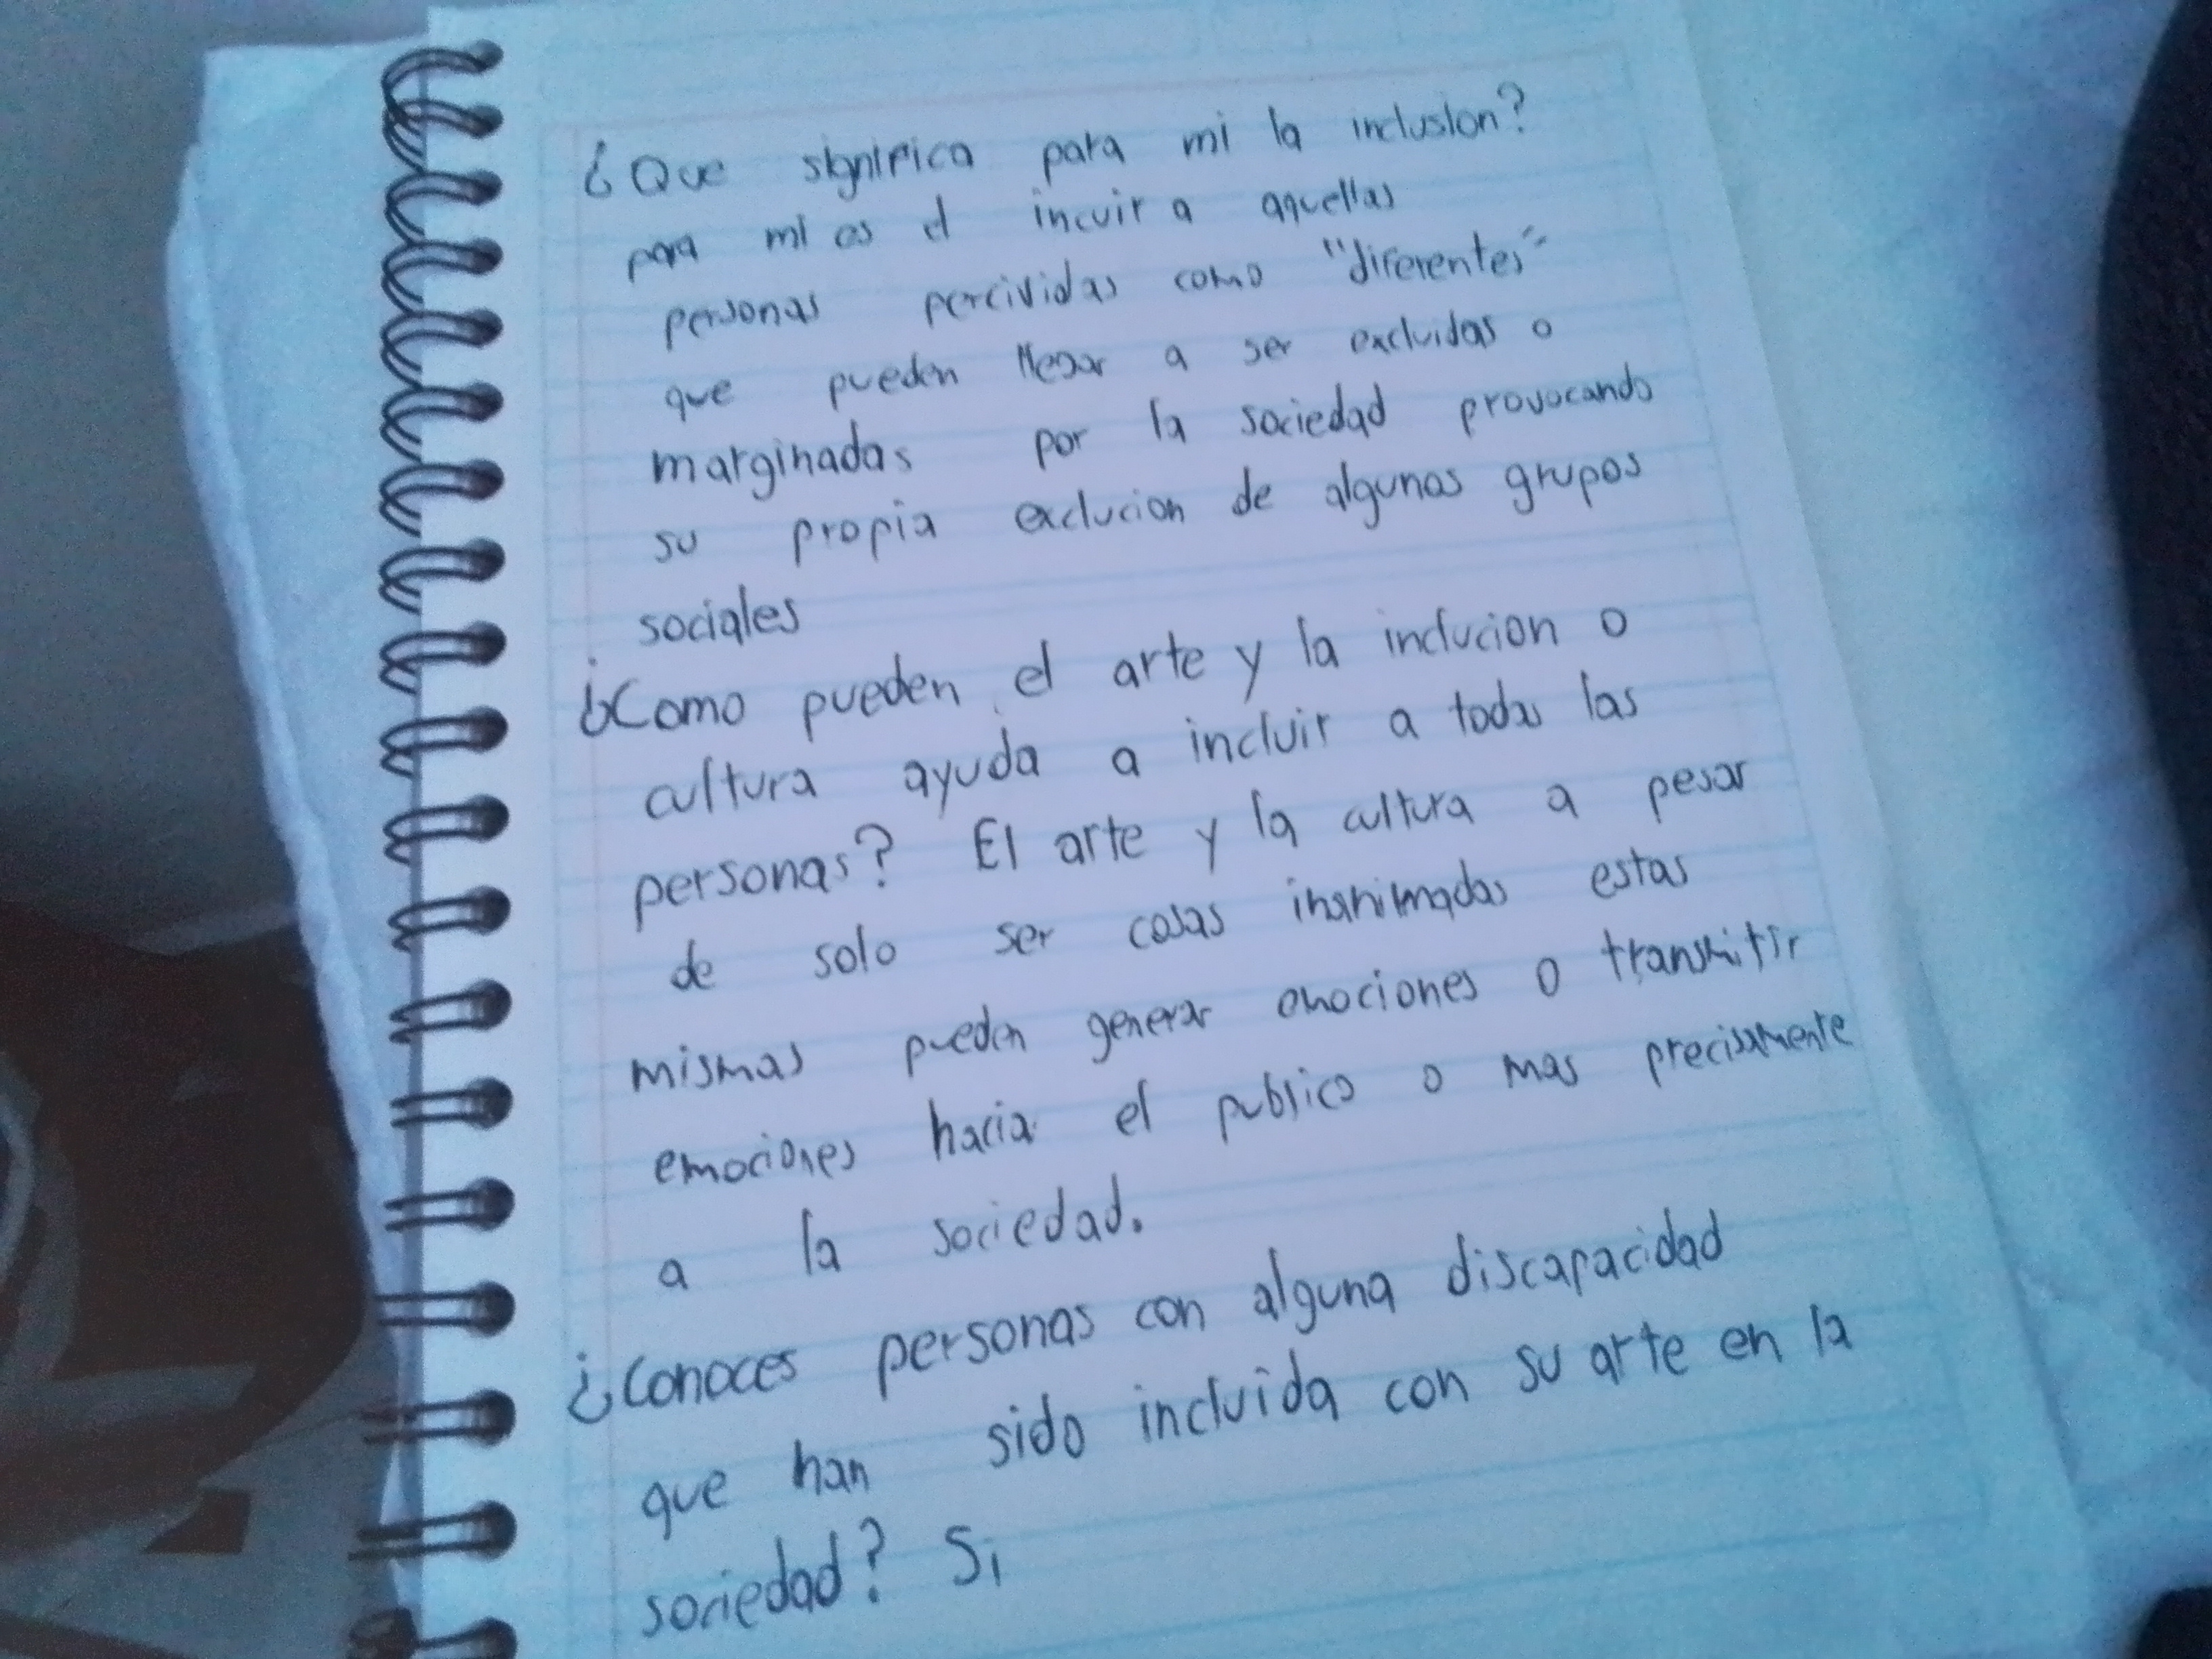 ¿Que significa para mi la inclusion?
para mi es el incuir a aquellas
personas percividas como "diferentes"
que pueden llegar a ser excluidas o
marginadas por la sociedad provocando
su propia exclucion de algunos grupos
sociales
¿Como pueden el arte y la inclucion o
cultura ayuda a incluir a todas las
personas? El arte y la cultura a pesar
de solo ser cosas inanimadas estas
mismas pueden generar emociones o transmitir
emociones hacia el publico o mas precisamente
a la sociedad.
¿Conoces personas con alguna discapacidad
que han sido incluida con su arte en la
sociedad? Si